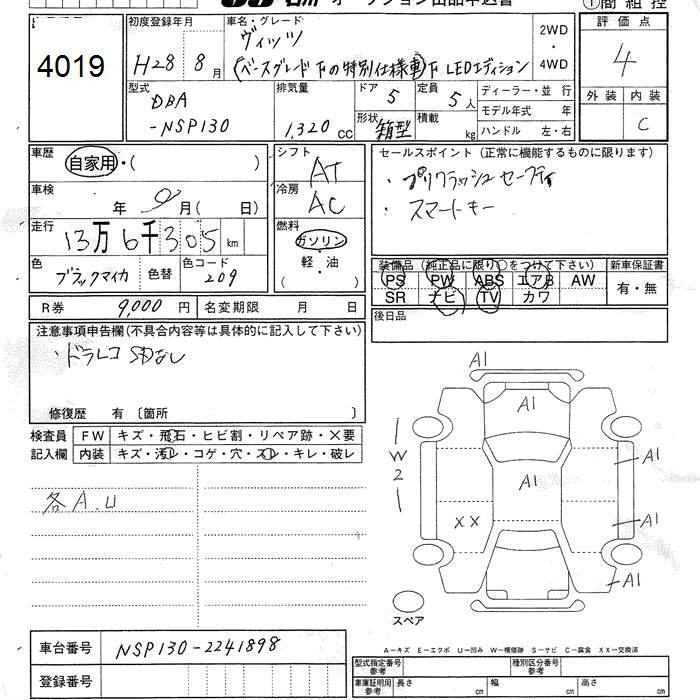 オークション出品申込書
①商組控
4019
初度登録年月
H28 8月
車名・グレード
ヴィッツ
(ベースグレード下の特別仕様車)F LEDエディション
2WD
・
4WD
評価点
4
外装 内装
C
型式
DBA
-NSP130
排気量
1,320 cc
ドア 5
定員 5人
形状 箱型
積載 kg
ディーラー・並行
モデル年式 年
ハンドル 左・右
車歴
自家用・( )
車検
年 9月( 日)
走行
13万6千305km
色
ブラックマイカ
色替
色コード
209
シフト
AT
冷房
AC
燃料
ガソリン
・
軽・油
( )
セールスポイント(正常に機能するものに限ります)
・プリクラッシュセーフティ
・スマートキー
装備品(純正品に限り○をつけて下さい)
PS PW ABS エアB AW
SR ナビ TV カワ
新車保証書
有・無
後日品
R券 9,000円 名変期限 月 日
注意事項申告欄(不具合内容等は具体的に記入して下さい)
・ドラレコ SDなし
修復歴 有〔箇所 〕
検査員
記入欄
FW キズ・飛石・ヒビ割・リペア跡・×要
内装 キズ・汚レ・コゲ・穴・スレ・キレ・破レ
各A.U
A1
A1
A1
A1
A1
A1
W
2
XX
スペア
A-キズ E-エクボ U-凹み W-補修跡 S-サビ C-腐食 XX-交換済
車台番号 NSP130-2241898
登録番号
型式指定番号
参考
種別区分番号
参考
車庫証明用
参考
長さ cm 幅 cm 高さ cm